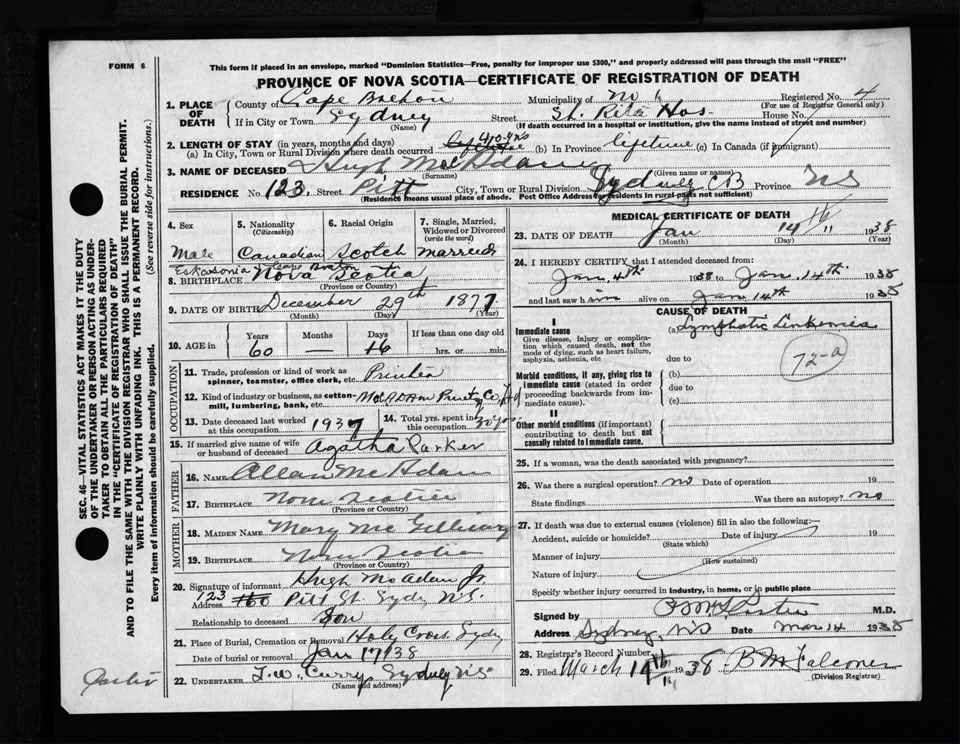 FORM 6
This form if placed in an envelope, marked "Dominion Statistics—Free, penalty for improper use $300," and properly addressed will pass through the mail "FREE"
PROVINCE OF NOVA SCOTIA—CERTIFICATE OF REGISTRATION OF DEATH
SEC. 46—VITAL STATISTICS ACT MAKES IT THE DUTY
OF THE UNDERTAKER OR PERSON ACTING AS UNDER-
TAKER TO OBTAIN ALL THE PARTICULARS REQUIRED
IN THE "CERTIFICATE OF REGISTRATION OF DEATH"
AND TO FILE THE SAME WITH THE DIVISION REGISTRAR WHO SHALL ISSUE THE BURIAL PERMIT.
WRITE PLAINLY WITH UNFADING INK. THIS IS A PERMANENT RECORD.
Every item of information should be carefully supplied. (See reverse side for instructions.)
1. PLACE OF DEATH County of Cape Breton Municipality of Registered No. 4
(For use of Registrar General only)
If in City or Town Sydney Street St. Rita Hos. House No.
(Name) (If death occurred in a hospital or institution, give the name instead of street and number)
2. LENGTH OF STAY (in years, months and days) 40 yrs
(a) In City, Town or Rural Division where death occurred (b) In Province lifetime (c) In Canada (if immigrant)
3. NAME OF DECEASED Hugh McAdam
(Surname) (Given name or names)
RESIDENCE No. 123 Street Pitt City, Town or Rural Division Sydney CB Province NS
(Residence means usual place of abode. Post Office Address for residents in rural parts not sufficient)
4. Sex 5. Nationality (Citizenship) 6. Racial Origin 7. Single, Married, Widowed or Divorced (write the word)
Male Canadian Scotch married
Eskasonia Cape Breton
8. BIRTHPLACE Nova Scotia
(Province or Country)
9. DATE OF BIRTH December 29th 1877
(Month) (Day) (Year)
10. AGE in Years Months Days If less than one day old
60 — 16 hrs. or min.
OCCUPATION
11. Trade, profession or kind of work as
spinner, teamster, office clerk, etc. Printer
12. Kind of industry or business, as cotton-
mill, lumbering, bank, etc. McADAM Print'g Co Ltd
13. Date deceased last worked
at this occupation 1937
14. Total yrs. spent in
this occupation 30 yrs
15. If married give name of wife
or husband of deceased Agatha Parker
FATHER
16. NAME Allan McAdam
17. BIRTHPLACE Nova Scotia
(Province or Country)
MOTHER
18. MAIDEN NAME Mary McGillivary
19. BIRTHPLACE Nova Scotia
(Province or Country)
20. Signature of informant Hugh McAdam Jr.
Address 123 Pitt St. Sydy N.S.
Relationship to deceased Son
21. Place of Burial, Cremation or Removal Holy Cross, Sydy
Date of burial or removal Jan 17/38
22. UNDERTAKER T.W. Curry, Sydney N.S.
(Name and address)
MEDICAL CERTIFICATE OF DEATH
23. DATE OF DEATH Jan 14th 1938
(Month) (Day) (Year)
24. I HEREBY CERTIFY that I attended deceased from:
Jan. 4th 1938 to Jan. 14th 1938
and last saw him alive on Jan 14th 1938
CAUSE OF DEATH
I
Immediate cause
Give disease, injury or complication which caused death, not the mode of dying, such as heart failure, asphyxia, asthenia, etc.
(a) Lymphatic Leukemia
due to
72-a
Morbid conditions, if any, giving rise to immediate cause (stated in order proceeding backwards from immediate cause).
(b)
due to
(c)
II
Other morbid conditions (if important) contributing to death but not causally related to immediate cause.
25. If a woman, was the death associated with pregnancy?
26. Was there a surgical operation? no Date of operation 19
State findings Was there an autopsy? no
27. If death was due to external causes (violence) fill in also the following:—
Accident, suicide or homicide? Date of injury 19
(State which)
Manner of injury
(How sustained)
Nature of injury
Specify whether injury occurred in industry, in home, or in public place
Signed by M.D.
Address Sydney, NS Date Mar 14 1938
28. Registrar's Record Number
29. Filed March 14th 1938 B M Falconer
(Division Registrar)